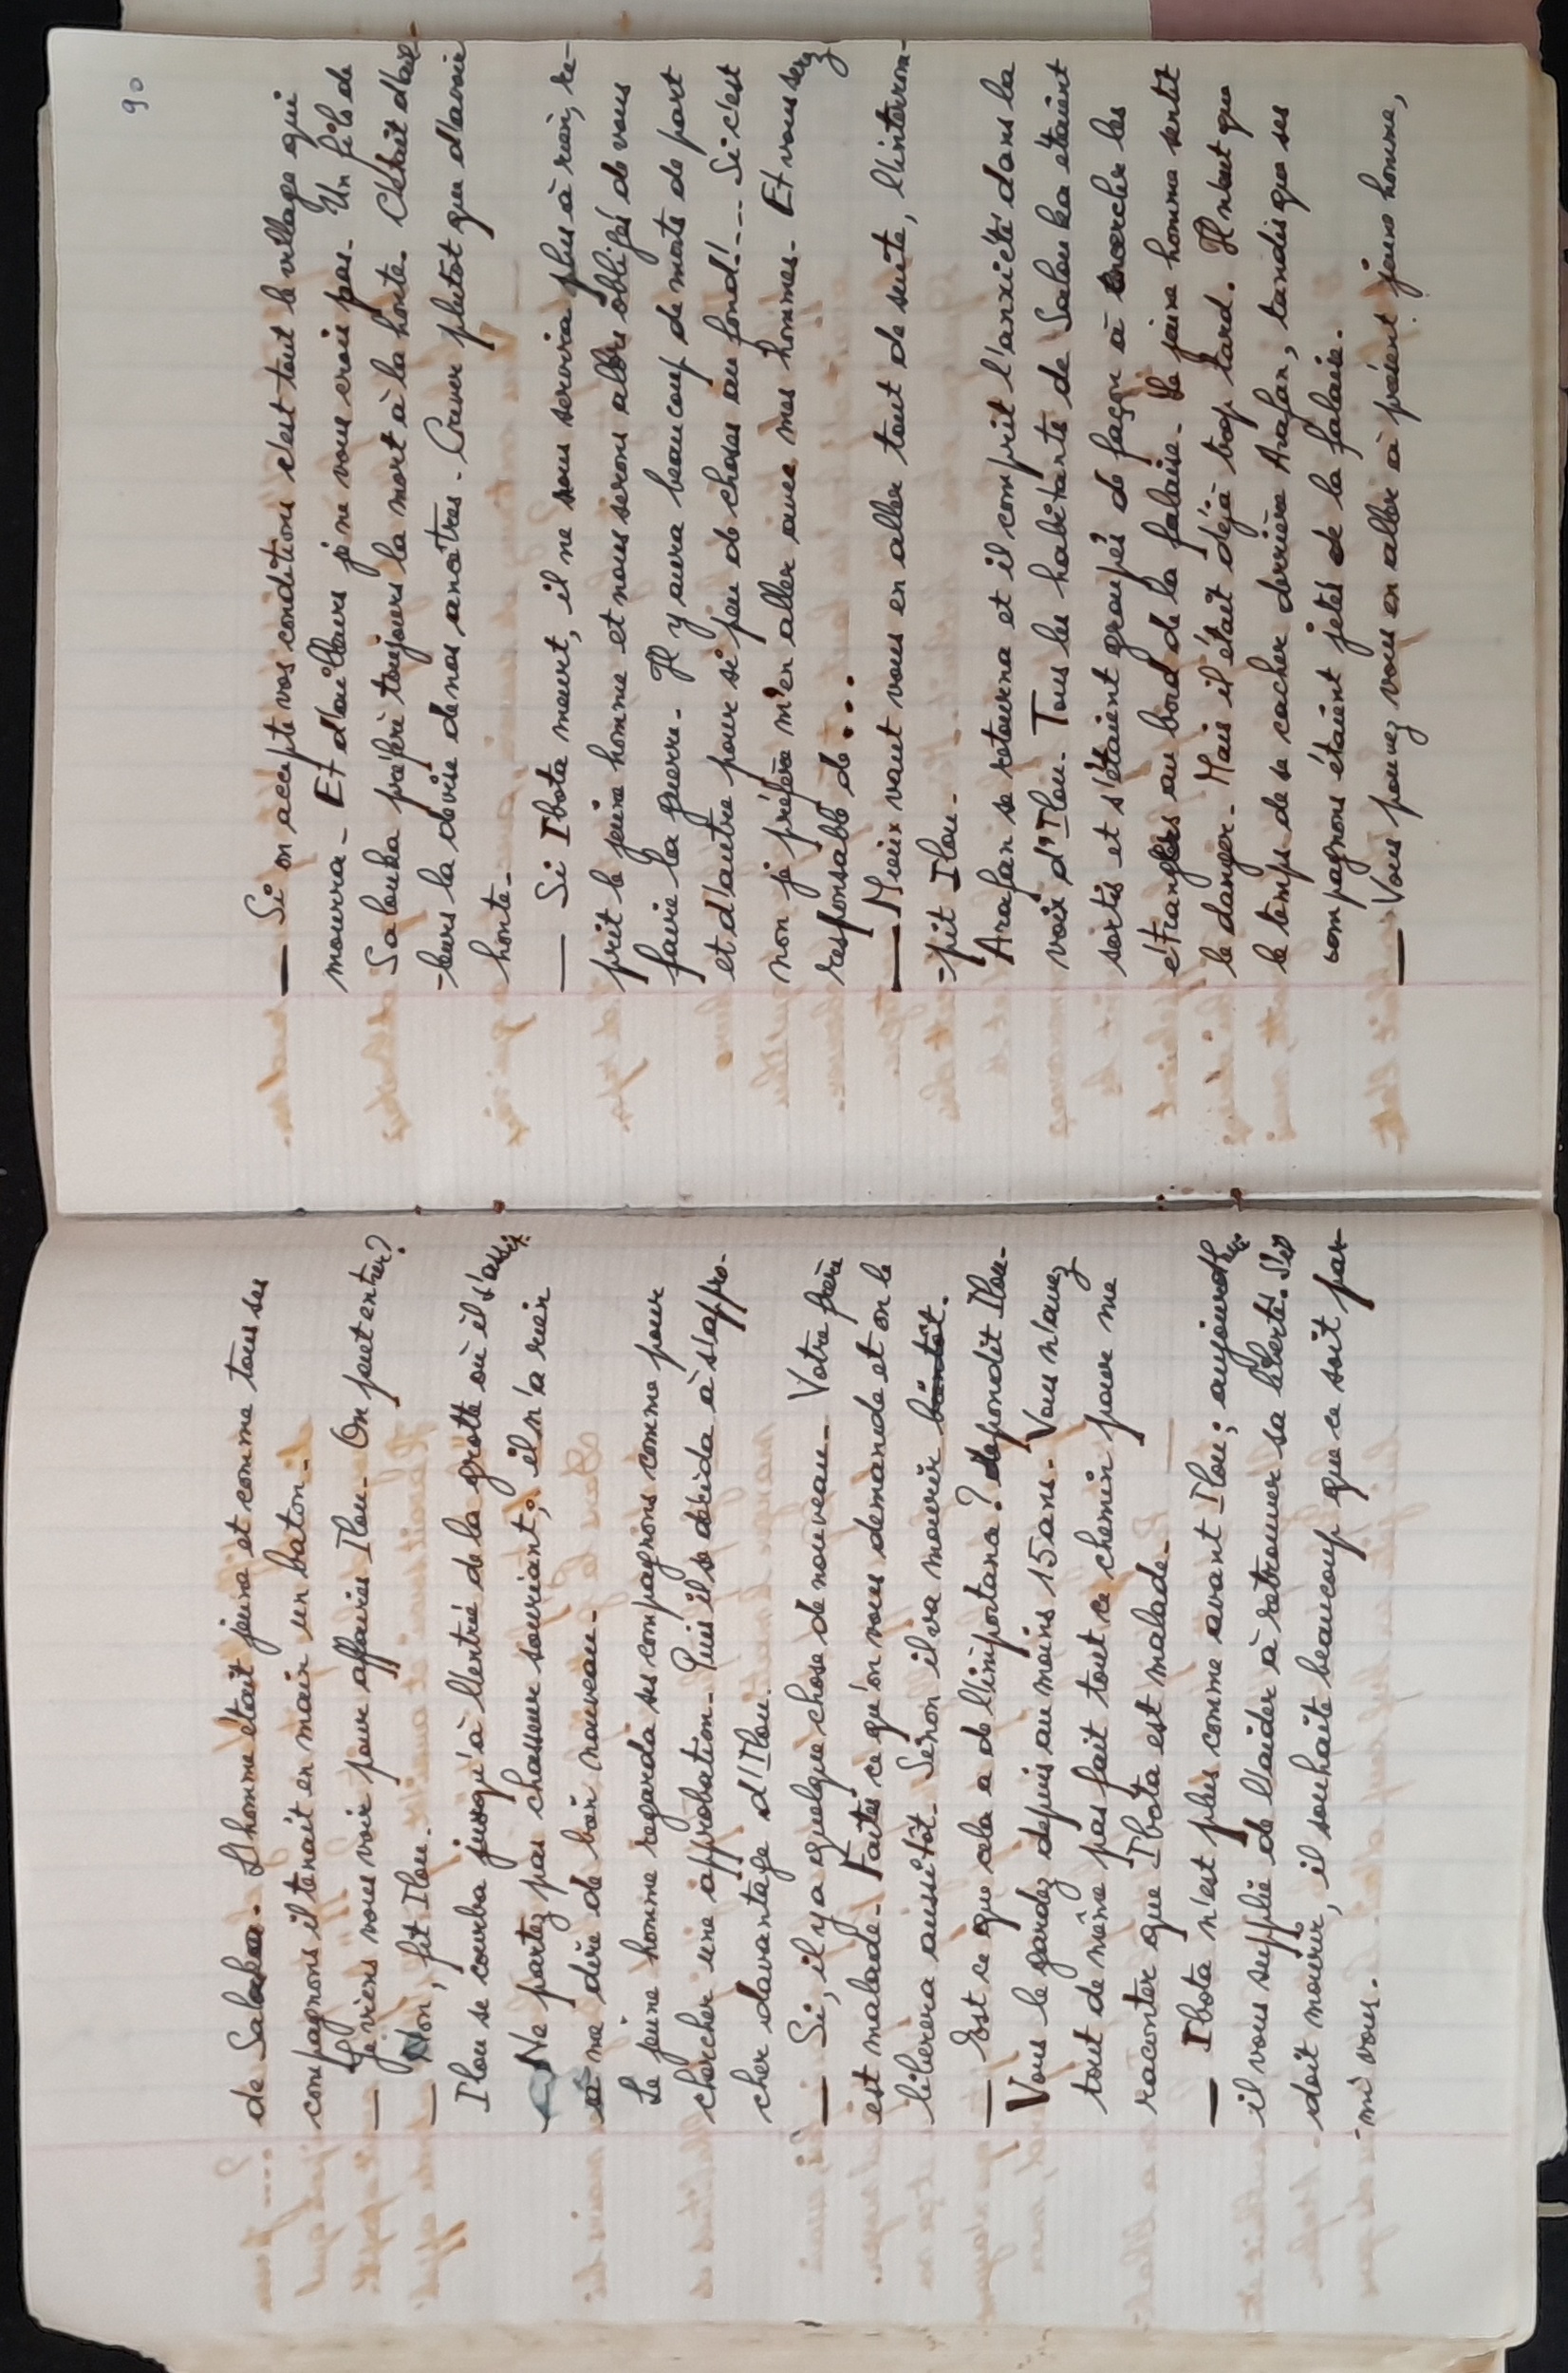 de Salouka. L'homme était jeune et comme tous ses
compagnons il tenait en main un baton.
— Je viens vous voir pour affaires Ilou. On peut entrer?
— Non, fit Ilou.
Ilou se courba jusqu'à l'entrée de la grotte où il s'assit.
— Ne partez pas chasseur souriant, il n'a rien
à me dire de bon nouveau.
Le jeune homme regarda ses compagnons comme pour
chercher une approbation. Puis il se décida à s'appro-
cher davantage d'Ilou.
— Si, il y a quelque chose de nouveau. Votre frère
est malade. Faites ce qu'on vous demande et on le
liberera aussitôt. Sinon il va mourir bientôt.
— Est ce que cela a de l'importance? répondit Ilou.
Vous le gardez depuis au moins 15 ans. Vous n'avez
tout de même pas fait tout ce chemin pour me
raconter que Ibota est malade.
— Ibota n'est plus comme avant Ilou; aujourd'hui
il vous supplie de l'aider à retrouver sa liberté. S'il
doit mourir, il souhaite beaucoup que ce soit par-
-mi vous.
90
— Si on accepte vos conditions c'est tout le village qui
mourra. Et d'ailleurs je ne vous crois pas. Un fils de
Salouka préfère toujours la mort à la honte. C'était d'ail-
-leurs la devise de nos ancêtres. Crever plutôt que d'avoir
honte.
— Si Ibota meurt, il ne nous servira plus à rien, re-
prit le jeune homme et nous serons alors obligés de vous
faire la guerre. Il y aura beaucoup de morts de part
et d'autre pour si peu de choses au fond!.... Si c'est
non je préfère m'en aller avec mes hommes. Et vous serez
responsable de...
— Mieux vaut vous en aller tout de suite, l'interrom-
-pit Ilou.
Arafan se retourna et il comprit l'anxiété dans la
voix d'Ilou. Tous les habitants de Salouka étaient
sortis et s'étaient groupés de façon à encercler les
étrangers au bord de la falaise. Le jeune homme sentit
le danger. Mais il était déjà trop tard. Il n'eut que
le temps de se cacher derrière Arafan, tandis que ses
compagnons étaient jetés de la falaise.
— Vous pouvez vous en aller à présent jeune homme,